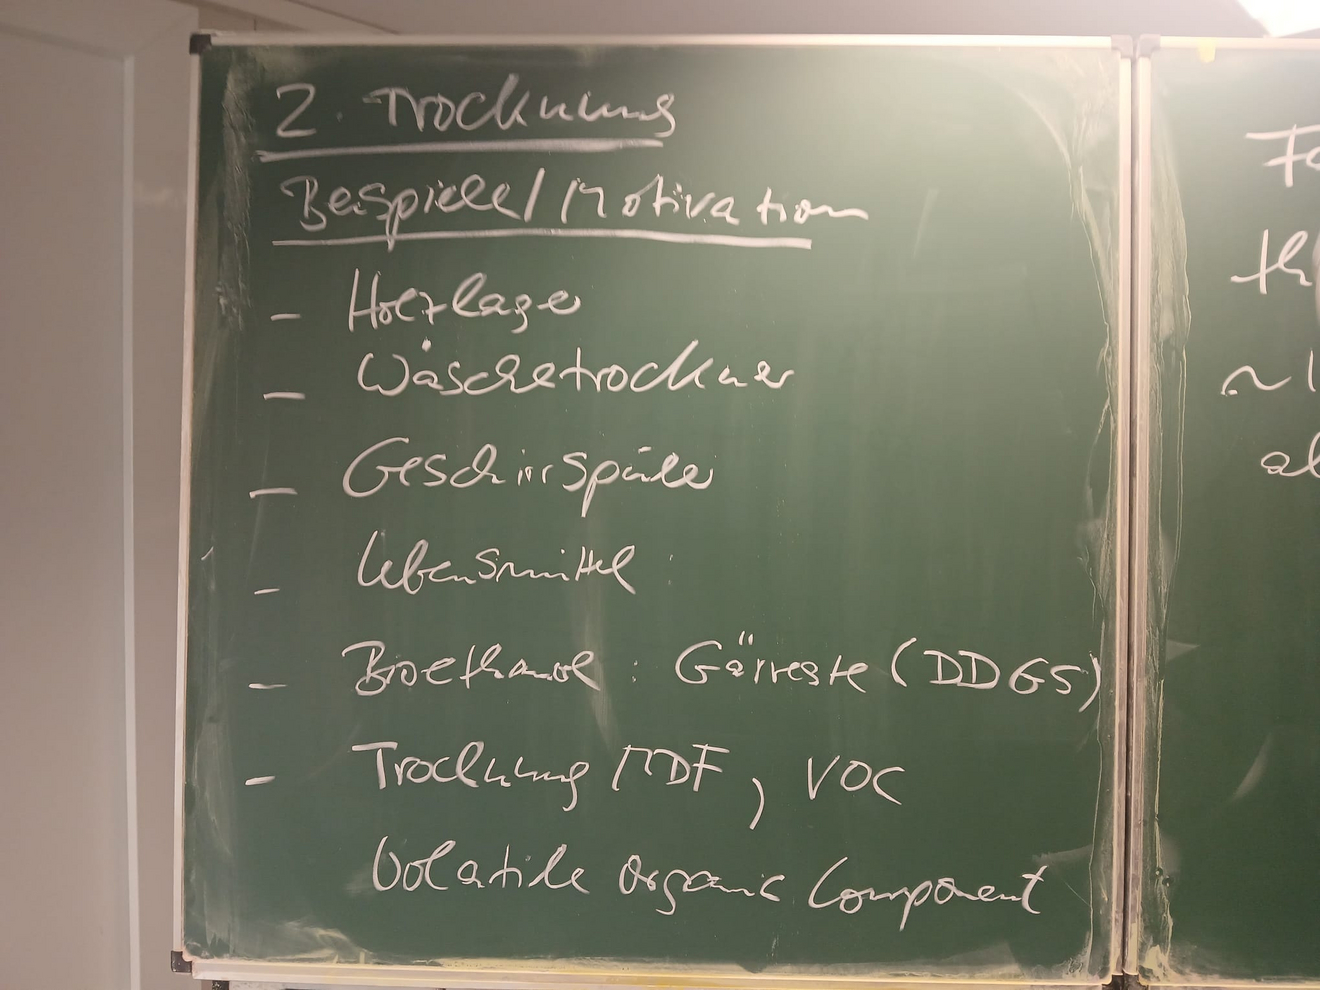 2. Trocknung
Beispiele/Motivation
- Holzlager
- Wäschetrockner
- Geschirrspüler
- Lebensmittel
- Bioethanol: Gärreste (DDGS)
- Trocknung MDF, VOC
Volatile Organic Component
th
~1